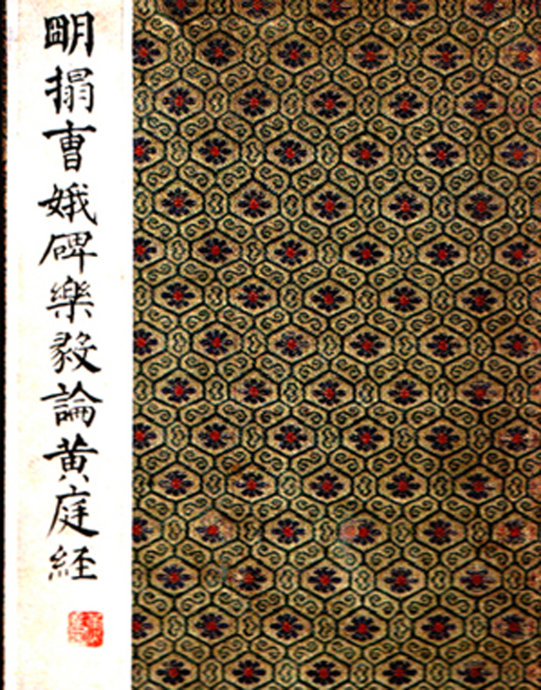 明搨曹娥碑樂毅論黄庭経